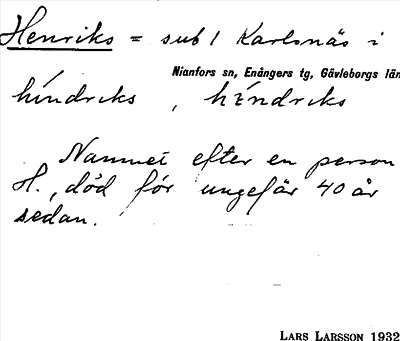 Henriks = sub 1 Karlsnäs i
Nianfors sn, Enångers tg, Gävleborgs län
híndriks, híndriks
Namnet efter en person
H., död för ungefär 40 år
sedan.
LARS LARSSON 1932